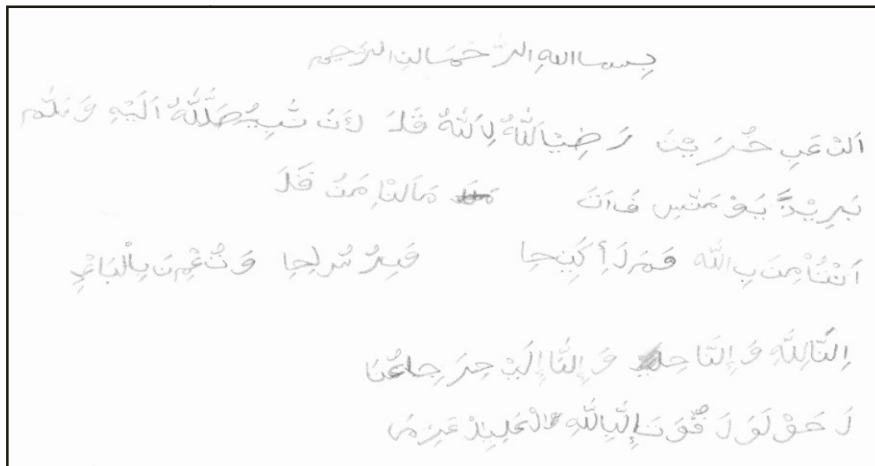 بِسما اللهِ الرَّحمَانِ الرَحيم
اَنْ عَبِ حُرَيْنَ رَضِيَاللّٰهُ لِاَللّٰهُ قَلَ كَنَ نَبِيُ صَلَّلّٰهُ اَلَيْهِ وَسَلَّم
بَرِيْدً يَوْمَنْسِ فَ اَتَ مَالنَا مَنُ قَلَ
اَنْتُأْمِنَ بِ اللّٰه وَمَلَأِكَتِحِا وَبِرُسُلِحِا وَتُئْمِنَ بِالْبَاعْثِ
اِنَّالِلّٰهِ وَاِنَّا وَاِنَّااِلَيْحِرَجِاعُنَ
لَ حَوْلَوَلَ قُوَّتَ اِلَّابِاللّٰهِ الْعَلِيِلْ عَزِمْ